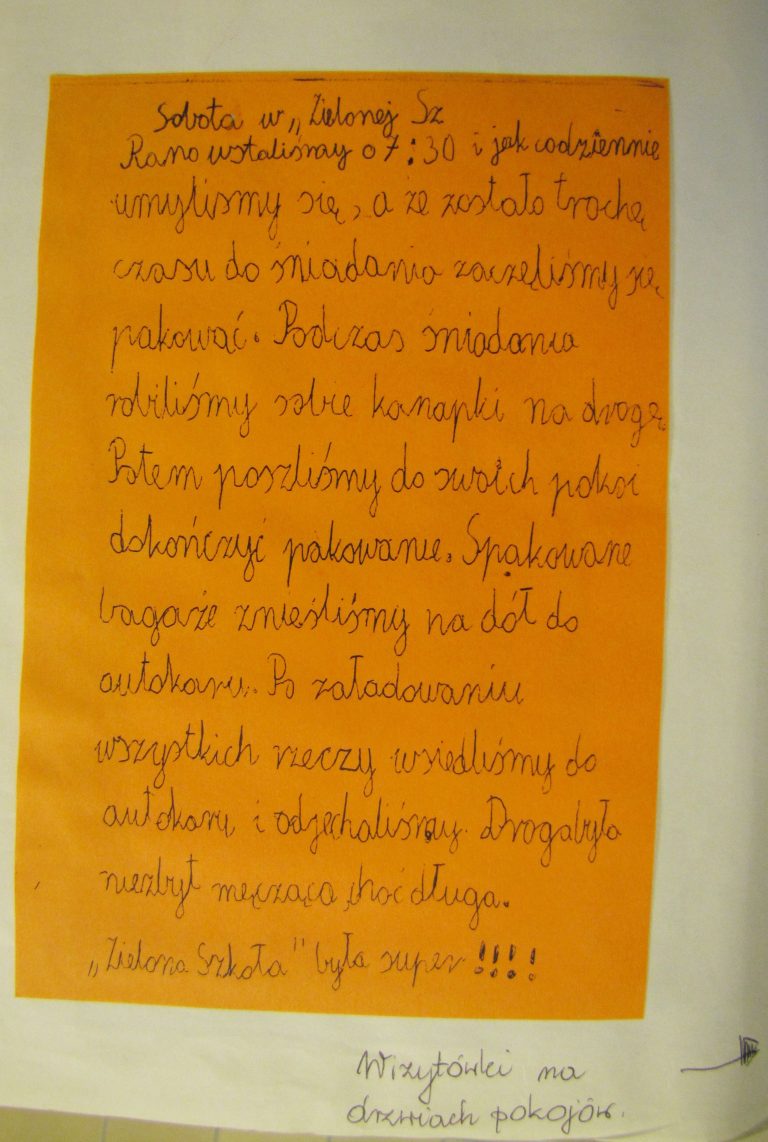 Sobota w „Zielonej Sz
Rano wstaliśmy o 7:30 i jak codziennie
umyliśmy się, a że zostało trochę
czasu do śniadania zaczęliśmy się
pakować. Podczas śniadania
robiliśmy sobie kanapki na drogę.
Potem poszliśmy do swoich pokoi
dokończyć pakowanie. Spakowane
bagaże znieśliśmy na dół do
autokaru. Po załadowaniu
wszystkich rzeczy wsiedliśmy do
autokaru i odjechaliśmy. Droga była
niezbyt męcząca, choć długa.
„Zielona Szkoła" była super !!!!
Wizytówki na
drzwiach pokojów.